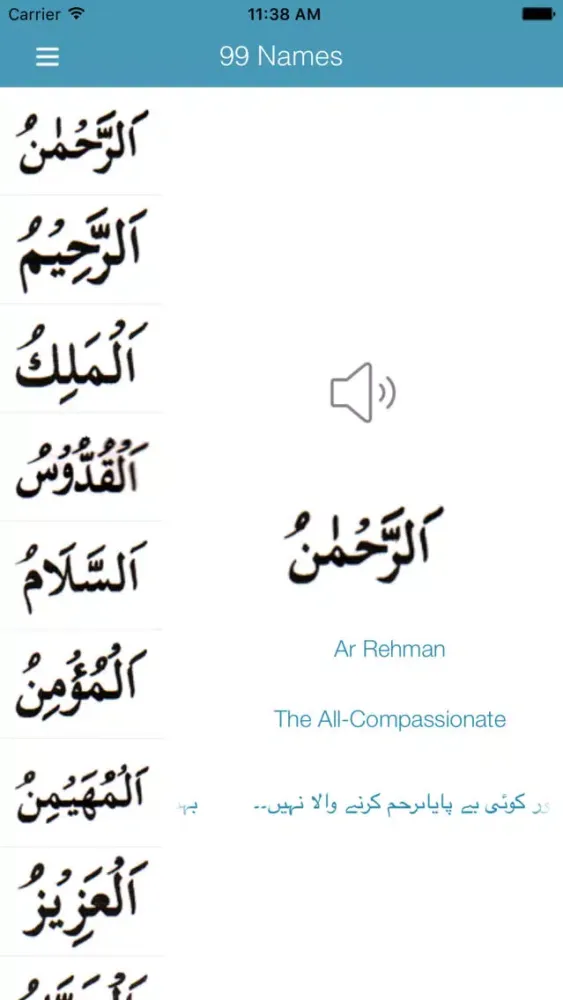 Carrier 11:38 AM
99 Names
اَلرَّحْمٰنُ
اَلرَّحِيْمُ
اَلْمَلِكُ
اَلْقُدُّوْسُ
اَلسَّلَامُ
اَلْمُؤْمِنُ
اَلْمُهَيْمِنُ
اَلْعَزِيْزُ
اَلرَّحْمٰنُ
Ar Rehman
The All-Compassionate
کوئی بے پایاںرحم کرنے والا نہیں۔۔